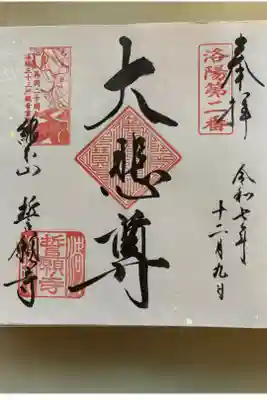 奉拝
洛陽第二番
令和七年
十二月九日
大悲尊
深草山
誓願寺
誓願寺